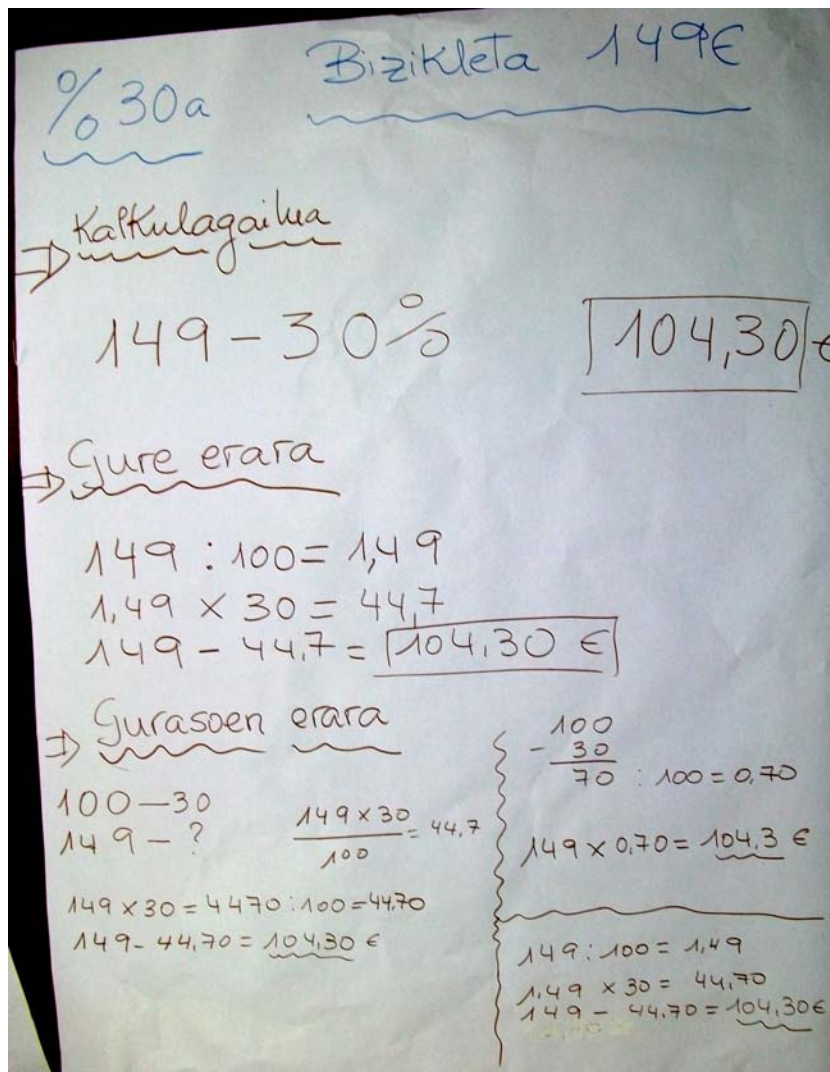 % 30a Bizikleta 149€
⇒ Kalkulagailua
149 - 30% 104,30 €
⇒ Gure erara
149 : 100 = 1,49
1,49 × 30 = 44,7
149 - 44,7 = 104,30 €
⇒ Gurasoen erara
100 — 30
149 — ?
149 × 30
100
= 44,7
149 × 30 = 4470 : 100 = 44,70
149 - 44,70 = 104,30 €
100
- 30
70 : 100 = 0,70
149 × 0,70 = 104,3 €
149 : 100 = 1,49
1,49 × 30 = 44,70
149 - 44,70 = 104,30€